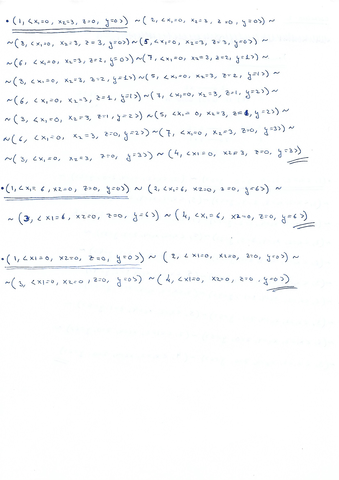 • (1, <x1=0, x2=3, z=0, y=0>) ~ (2, <x1=0, x2=3, z=0, y=0>) ~
~ (3, <x1=0, x2=3, z=3, y=0>) ~ (5, <x1=0, x2=3, z=3, y=0>) ~
~ (6, <x1=0, x2=3, z=2, y=0>) ~ (7, <x1=0, x2=3, z=2, y=1>) ~
~ (3, <x1=0, x2=3, z=2, y=1>) ~ (5, <x1=0, x2=3, z=2, y=1>) ~
~ (6, <x1=0, x2=3, z=1, y=1>) ~ (7, <x1=0, x2=3, z=1, y=2>) ~
~ (3, <x1=0, x2=3, z=1, y=2>) ~ (5, <x1=0, x2=3, z=1, y=2>) ~
~ (6, <x1=0, x2=3, z=0, y=2>) ~ (7, <x1=0, x2=3, z=0, y=3>) ~
~ (3, <x1=0, x2=3, z=0, y=3>) ~ (4, <x1=0, x2=3, z=0, y=3>)
• (1, <x1=6, x2=0, z=0, y=0>) ~ (2, <x1=6, x2=0, z=0, y=6>) ~
~ (3, <x1=6, x2=0, z=0, y=6>) ~ (4, <x1=6, x2=0, z=0, y=6>)
• (1, <x1=0, x2=0, z=0, y=0>) ~ (2, <x1=0, x2=0, z=0, y=0>) ~
~ (3, <x1=0, x2=0, z=0, y=0>) ~ (4, <x1=0, x2=0, z=0, y=0>)